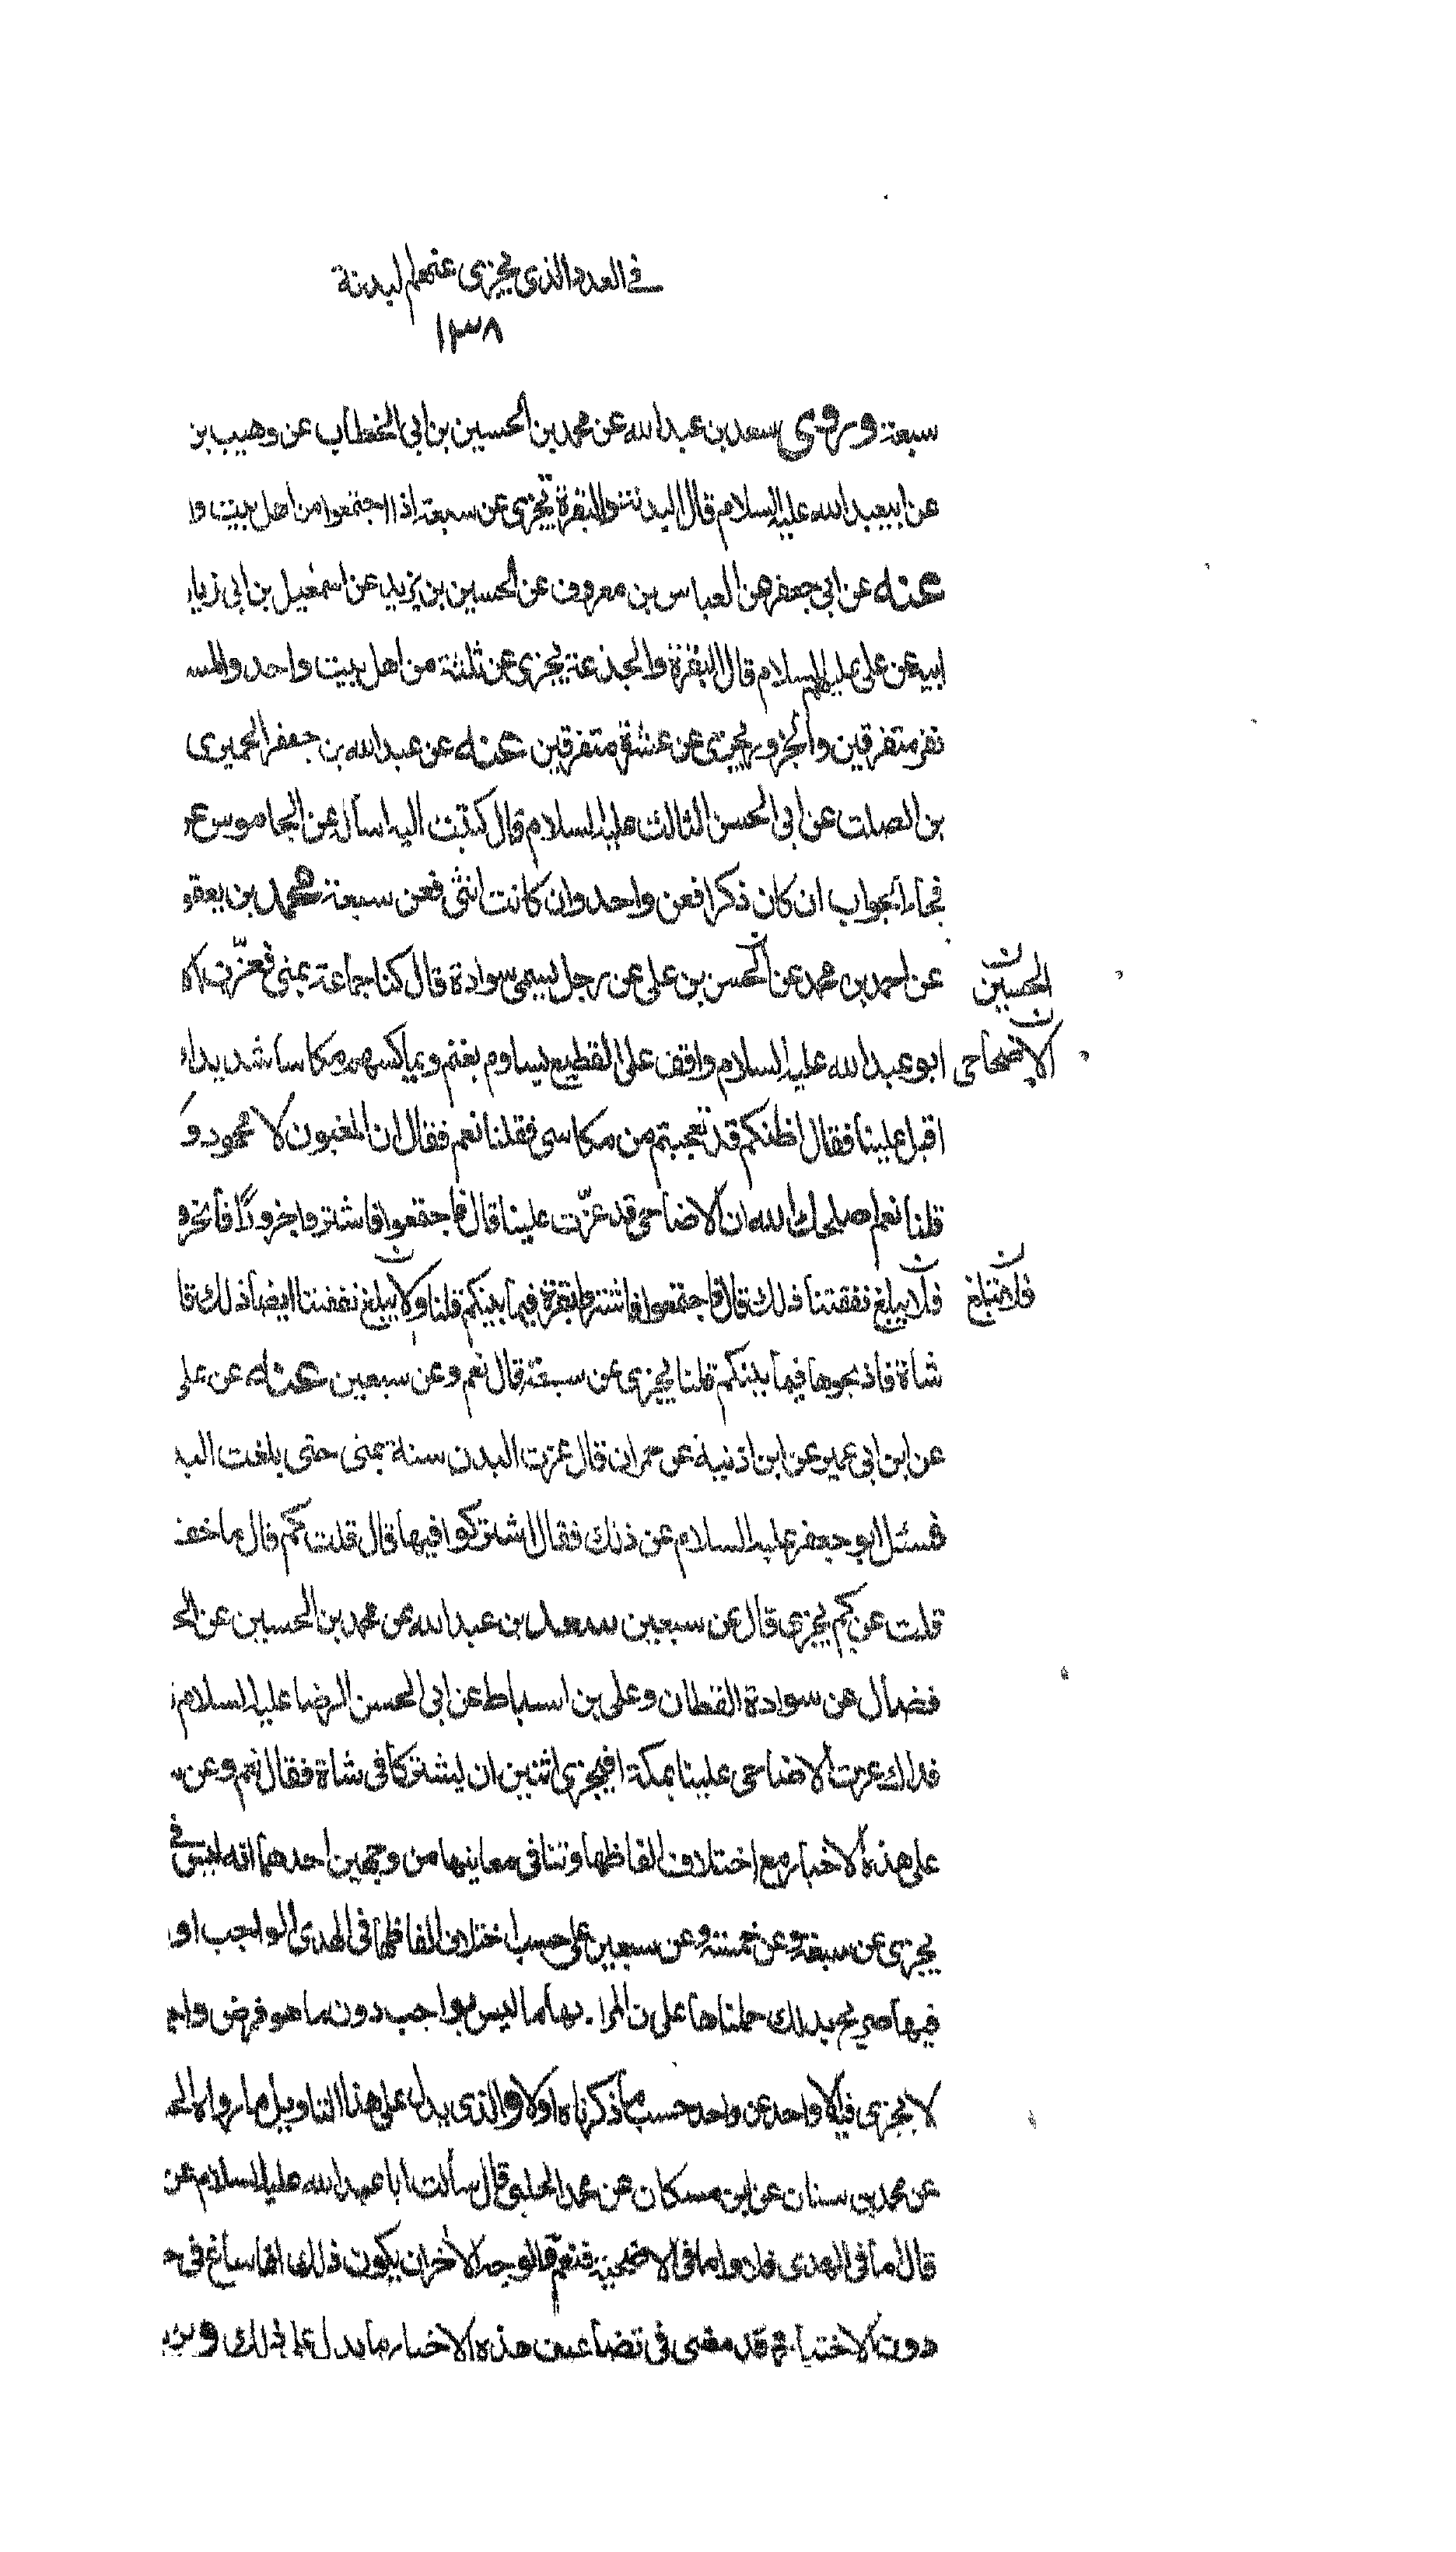 في العدد الذي يجزى عنهم البدنة
١٣٨
سبعة وروى سعد بن عبدالله عن محمد بن الحسين بن ابى الخطاب عن وهيب بن
عن ابيعبدالله عليه السلام قال البدنة والبقرة تجزى عن سبعة اذا اجتمعوا من اهل بيت و
عنه عن ابى جعفر عن العباس بن معروف عن الحسين بن يزيد عن اسمعيل بن ابى زياد
ابيه عن على عليهم السلام قال البقرة والجذعة يجزى عن ثلثة من اهل بيت واحد والمسـ
نفر متفرقين والجزور يجزى عن عشرة متفرقين عنه عن عبدالله بن جعفر الحميرى
بن الصلت عن ابى الحسن الثالث عليه السلام قال كتبت اليه اسأله عن الجاموس عن
فجاء الجواب ان كان ذكرا فعن واحد وان كانت انثى فعن سبعة محمد بن يعقو
عن احمد بن محمد عن الحسن بن على عن رجل يسمى سوادة قال كنا جماعة بمنى فعزّت الا
الحسين ن
ابو عبدالله عليه السلام واقف على القطيع يساوم بغنم ويماكسهم مكاسا شديدا
الاضاحى ن
اقبل علينا فقال اظنكم قد تعجبتم من مكاسى فقلنا نعم فقال ان المغبون لا محمود و
قلنا نعم اصلحك الله ان الاضاحى قد عزّت علينا قال فاجتمعوا فاشتروا جزورًا فانحرو
فلا يبلغ نفقتنا ذلك قال فاجتمعوا فاشتروا بقرة فيما بينكم قلنا ولا يبلغ نفقتنا ايضا ذلك قا
فلا تبلغ ن
شاة فاذبحوها فيما بينكم قلنا يجزى عن سبعة قال نعم وعن سبعين عنه عن على
عن ابن ابى عمير عن ابن اذنية عن حمران قال عزت البدن سنة بمنى حتى بلغت البد
فسئل ابو جعفر عليه السلام عن ذلك فقال اشتركوا فيها قال قلت كم قال ما خف
قلت عن كم يجزى قال عن سبعين سعد بن عبدالله عن محمد بن الحسين عن الحـ
فضال عن سوادة القطان وعلى بن اسباط عن ابى الحسن الرضا عليه السلام
فداك عزت الاضاحى علينا بمكة افيجزى اثنين ان يشتركا فى شاة فقال نعم وعن
على هذه الاخبار مع اختلاف الفاظها وتنافى معانيها من وجهين احدهما انه ليس فى
يجزى عن سبعة وعن خمسة وعن سبعين على حسب اختلاف الفاظها فى الهدى الواجب او
فيها صريح بذلك حملناها على ن المراد بها ما ليس بواجب دون ما هو فرض واجـ
لا يجزى فيه الا واحد عن واحد حسب ما ذكرناه اولا والذى يدل على هذا التاويل ما رواه الحـ
عن محمد بن سنان عن ابن مسكان عن محمد الحلبى قال سألت ابا عبدالله عليه السلام عن
قال اما فى الهدى فلا واما فى الاضحية فنعم والوجه الاخر ان يكون ذلك انما ساغ فى حـ
دون الاختيار وقد مضى فى تضاعيف هذه الاخبار ما يدل على ذلك